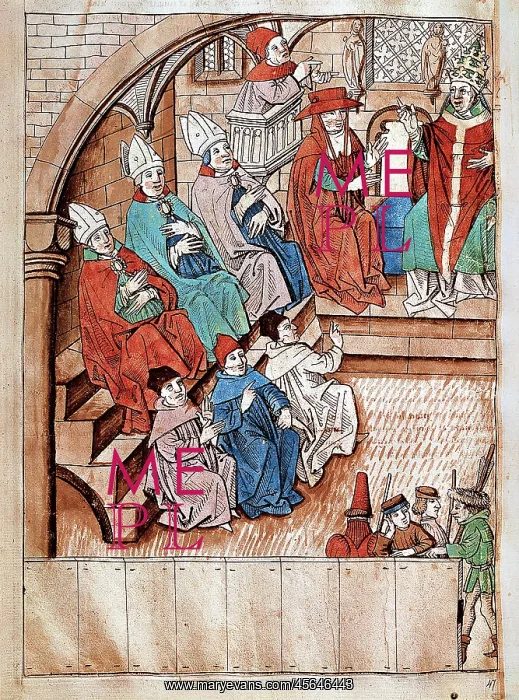 ME
PL
ME
PL
47
www.maryevans.com/45646443